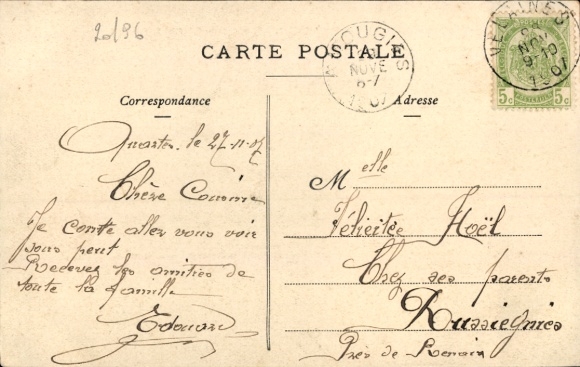 20/96
CARTE POSTALE
VELAINES
NOV
9-10
1907
OUGIES
NOVE
1907
5c 5c
Correspondance
Adresse
le 27-11-07
Chère Cousine
Je conte aller vous voir
sous peut
Recevez les amitiés de
toute la famille
Edouard
Melle
Félicitée Hoël
Chez ses parents
Russeignies
Près de Renaix